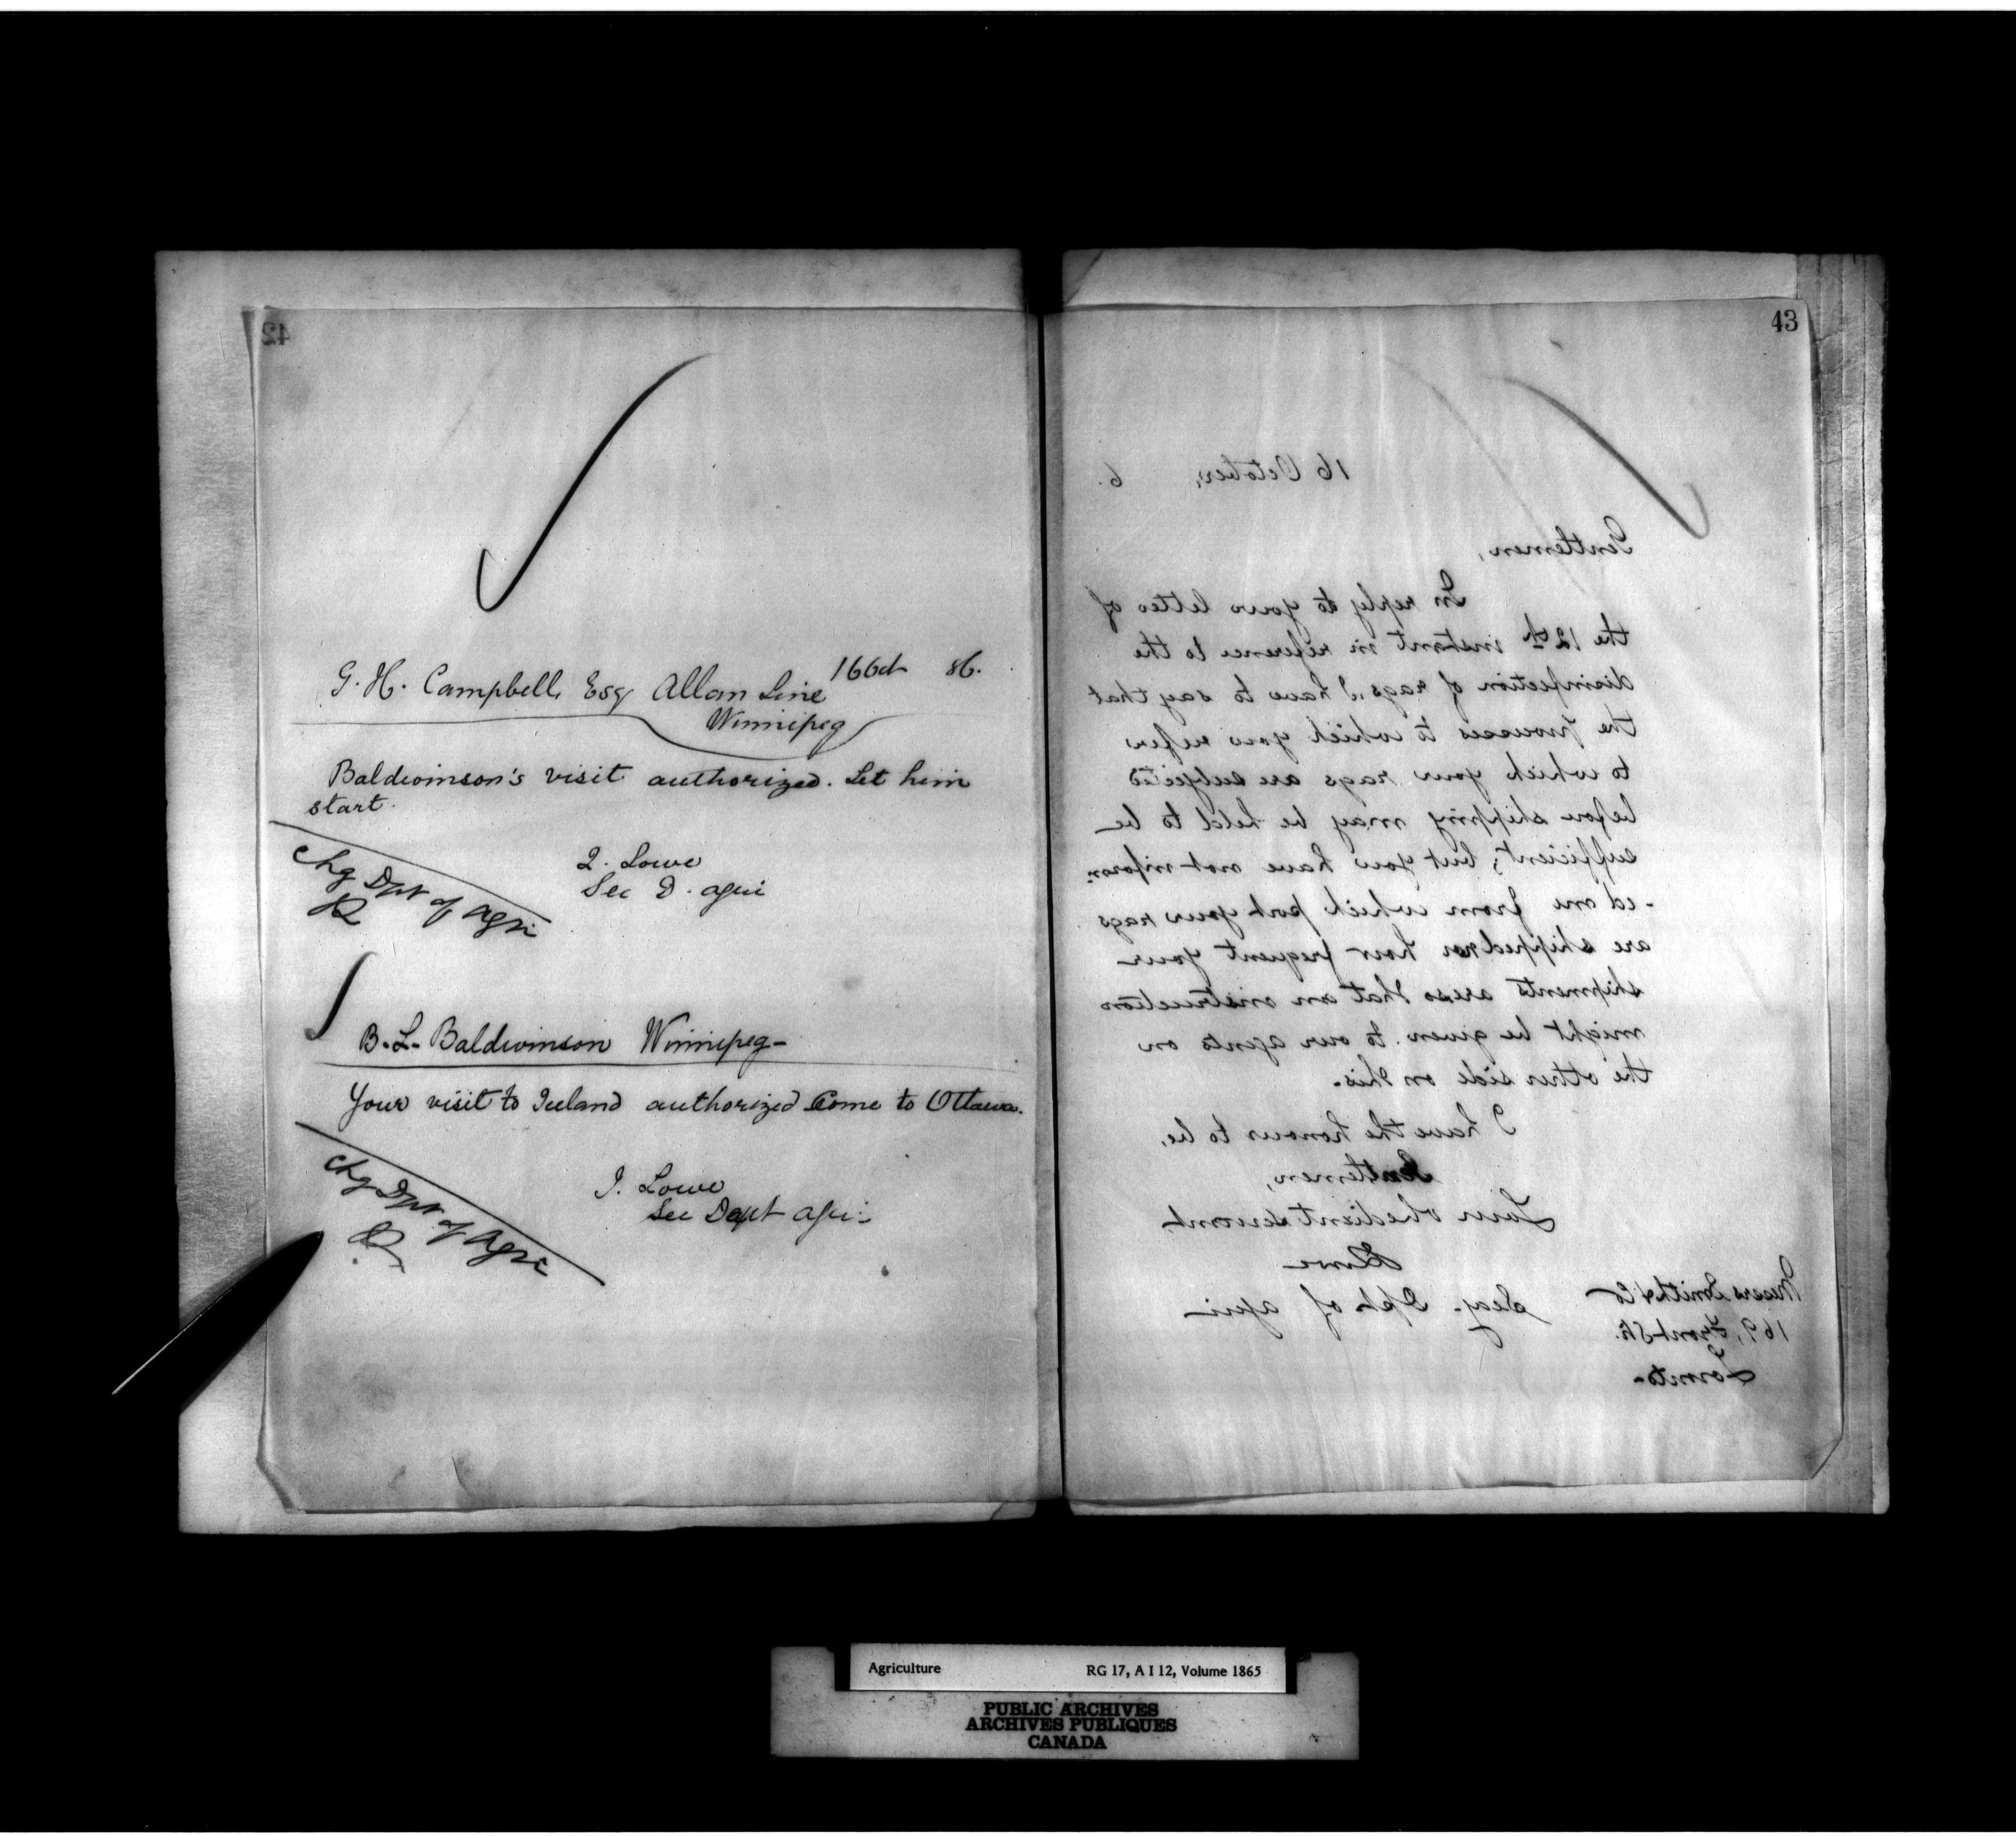 42
16 Oct 86.
G. H. Campbell, Esq Allan Line
Winnipeg
Baldwinson's visit authorized. Let him
start.
J. Lowe
Sec D. Agri
Chg Dpt of Agri
B. L. Baldwinson Winnipeg-
Your visit to Iceland authorized Come to Ottawa.
J. Lowe
Sec Dept Agri
Chg Dpt of Agri
43
16 October, 6.
Gentlemen,
In reply to your letter of
the 12th instant in reference to the
disinfection of rags, I have to say that
the processes to which you refer
to which your rags are subjected
before shipping may be held to be
sufficient; but you have not inform
-ed me from which port your rags
are shipped nor how frequent your
shipments are so that an instruction
might be given to our agents on
the other side on this.
I have the honour to be,
Gentlemen,
Your obedient servant,
Lowe
Secy. Dpt of Agri
Messrs Smith & Co
169, Front St.
Toronto-
Agriculture RG 17, A I 12, Volume 1865
PUBLIC ARCHIVES
ARCHIVES PUBLIQUES
CANADA